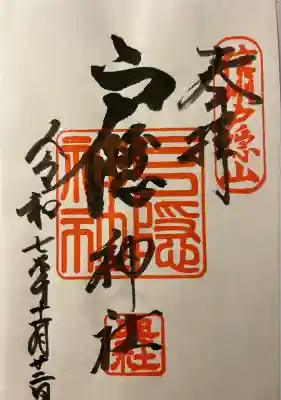 奉拝
信州戸隠山
戸隠神社
戸隠神社
令和七年十一月廿二日